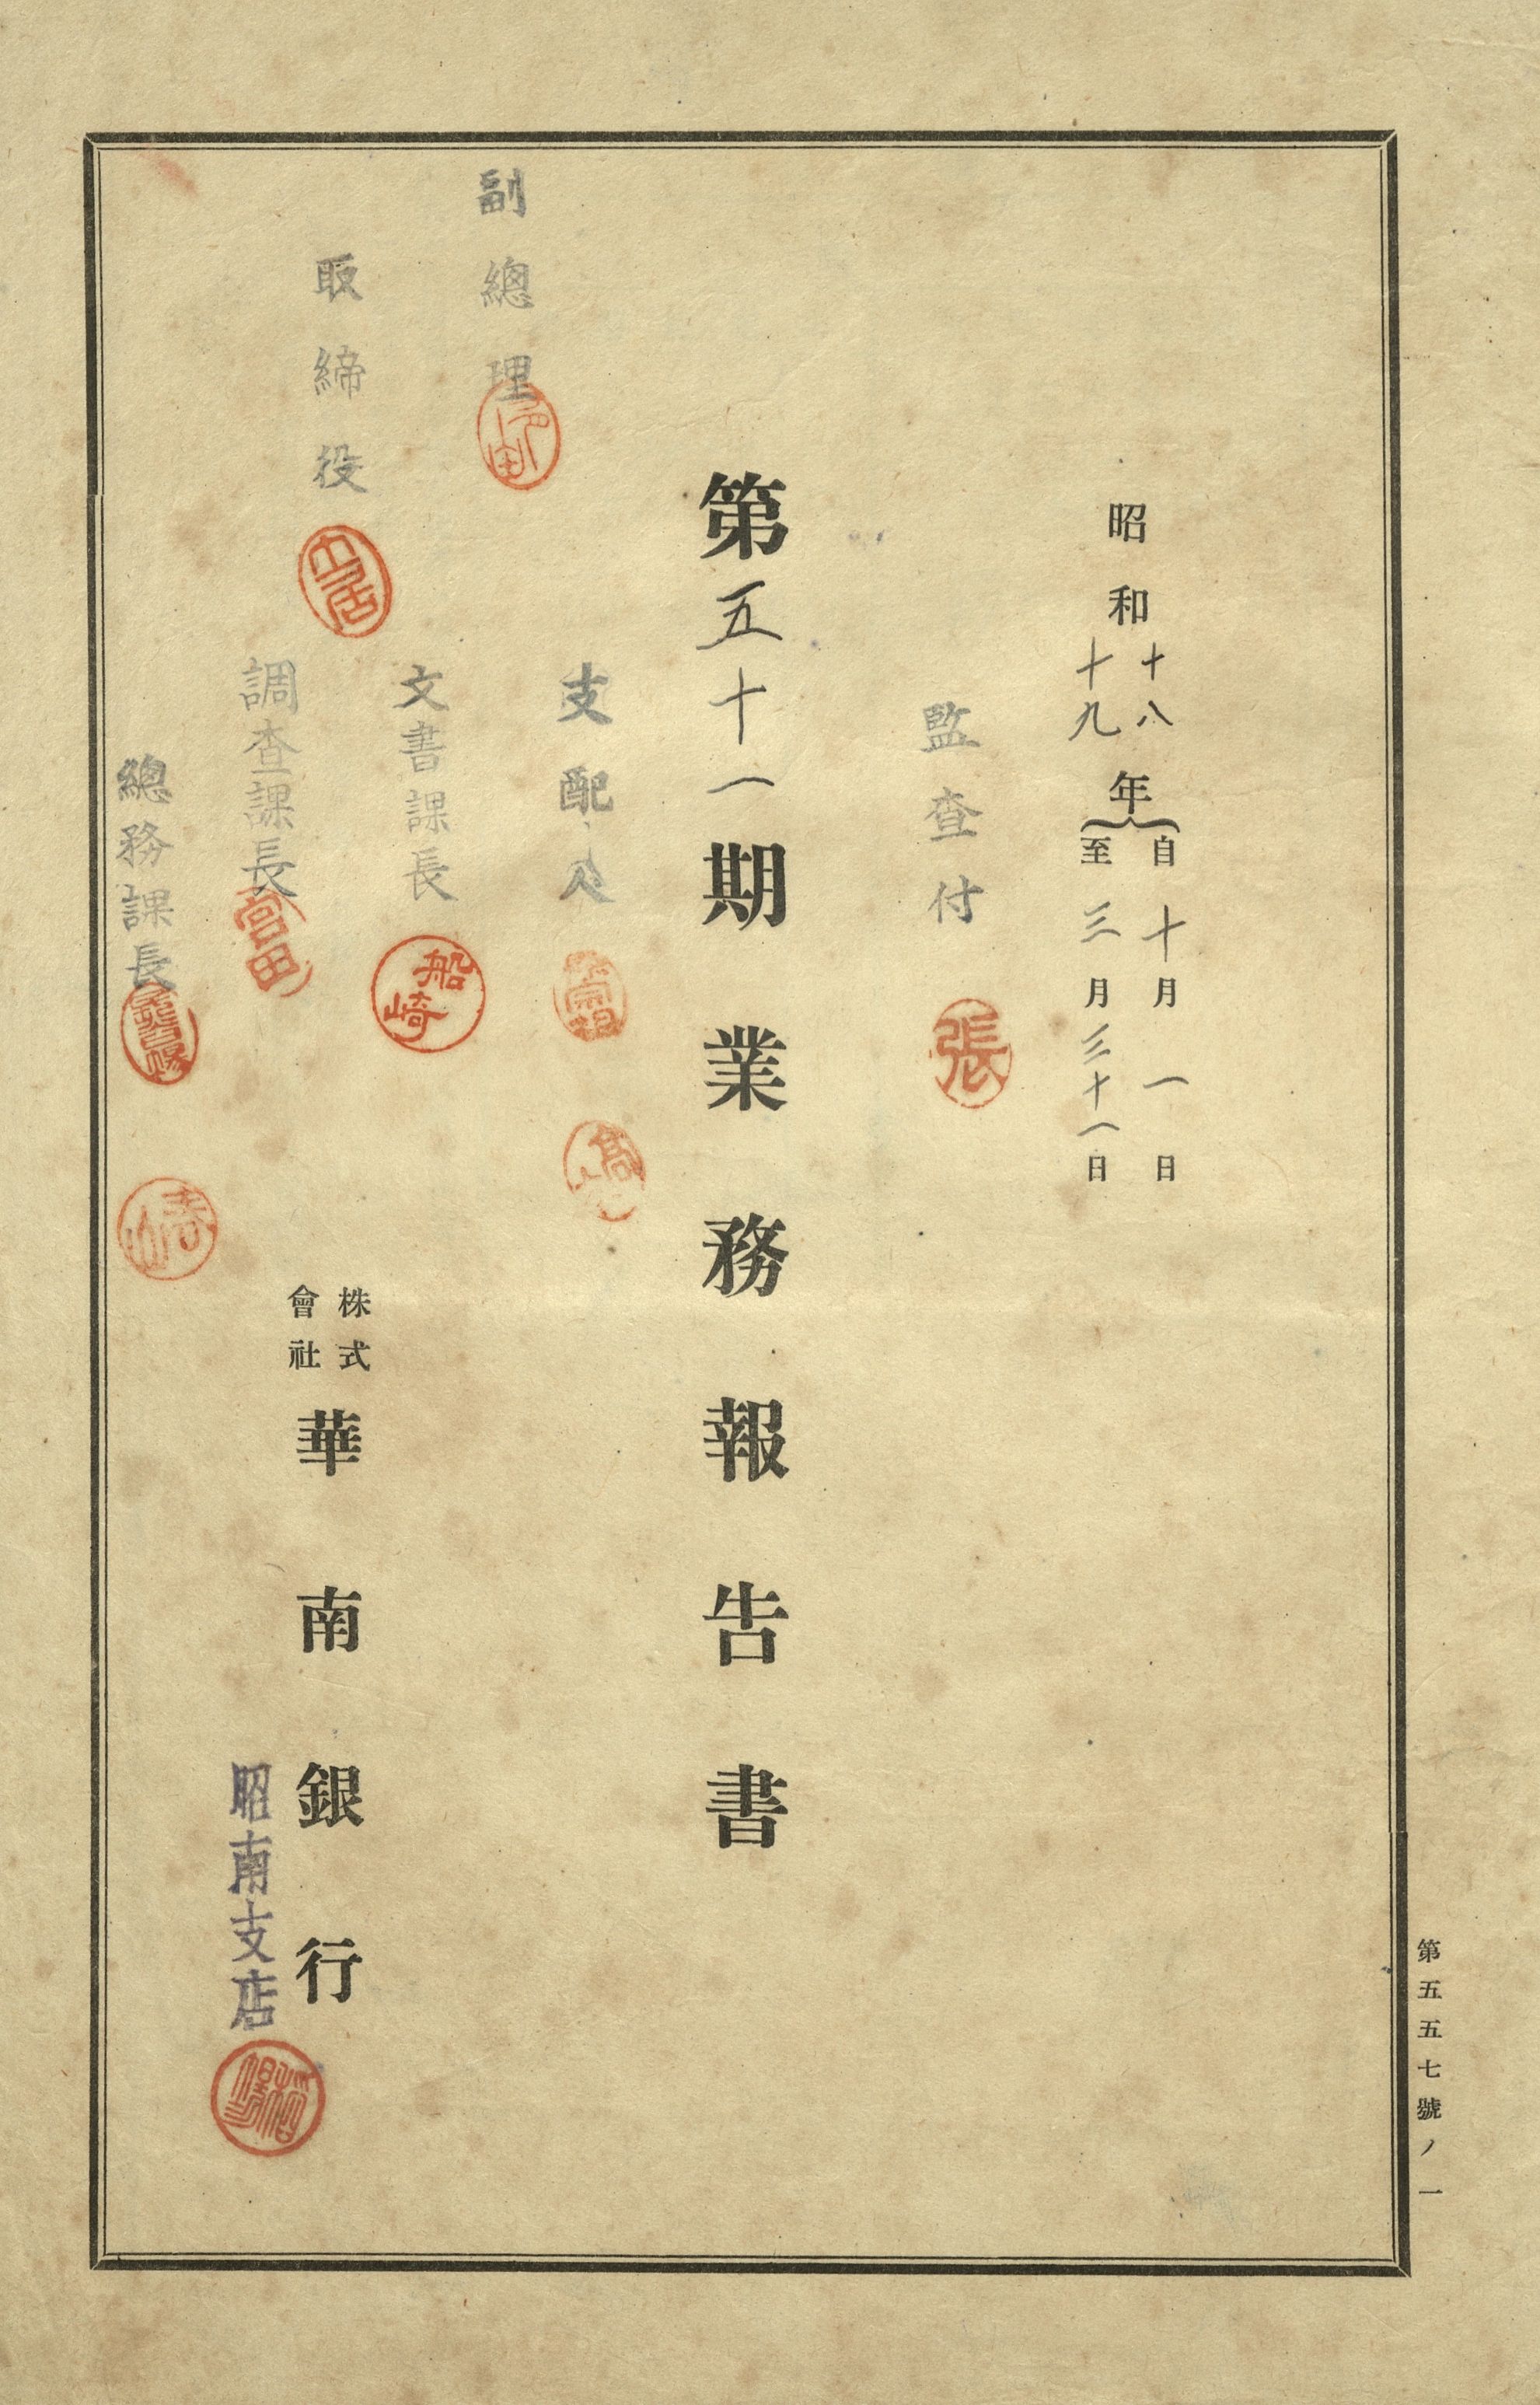 第五五七號ノ一
昭和十八十九年
自十月一日
至三月三十一日
監査付
張
第五十一期業務報告書
支配人
副總理
文書課長
船崎
取締役
土居
調査課長
富田
總務課長
株式會社華南銀行
昭南支店